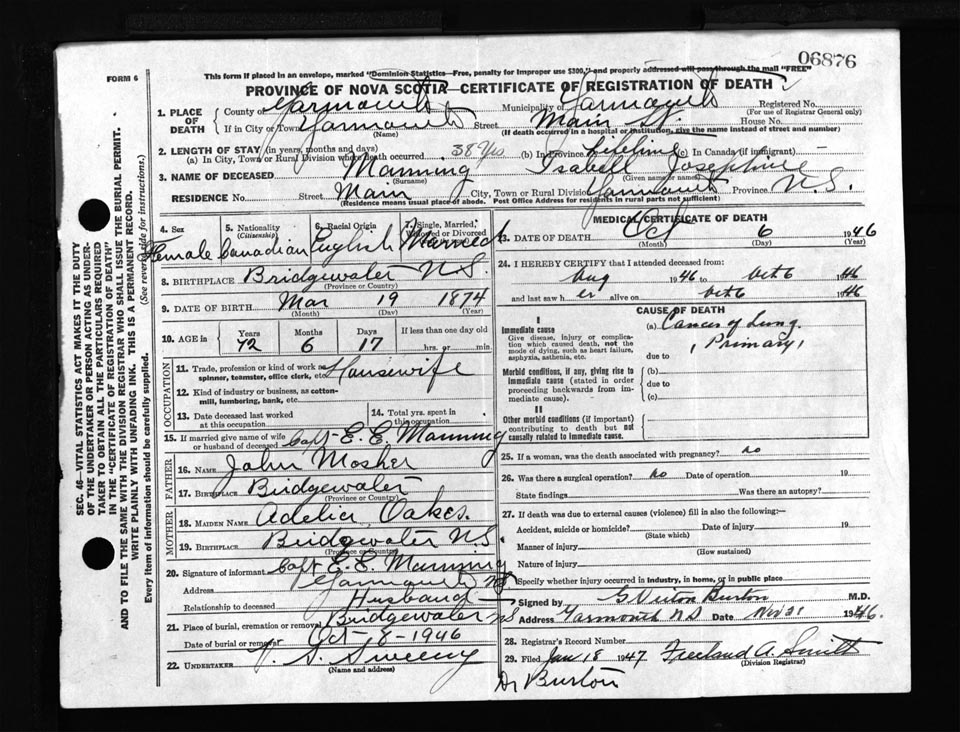 06876
FORM 6
This form if placed in an envelope, marked "Dominion Statistics—Free, penalty for improper use $300," and properly addressed will pass through the mail "FREE"
PROVINCE OF NOVA SCOTIA—CERTIFICATE OF REGISTRATION OF DEATH
1. PLACE OF DEATH
County of Yarmouth Municipality of Yarmouth Registered No.
(For use of Registrar General only)
If in City or Town Yarmouth Street Main St. House No.
(Name) (If death occurred in a hospital or institution, give the name instead of street and number)
2. LENGTH OF STAY (in years, months and days)
(a) In City, Town or Rural Division where death occurred 38 Yrs (b) In Province Lifetime (c) In Canada (if immigrant)
3. NAME OF DECEASED Manning Isabell Josephine
(Surname) (Given name or names)
RESIDENCE No. Street Main City, Town or Rural Division Yarmouth Province N.S.
(Residence means usual place of abode. Post Office Address for residents in rural parts not sufficient)
4. Sex Female
5. Nationality (Citizenship) Canadian
6. Racial Origin English
7. Single, Married, Widowed or Divorced Married
8. BIRTHPLACE Bridgewater N.S.
(Province or Country)
9. DATE OF BIRTH Mar 19 1874
(Month) (Day) (Year)
10. AGE in Years Months Days If less than one day old
72 6 17 hrs. or min.
OCCUPATION
11. Trade, profession or kind of work as spinner, teamster, office clerk, etc. Housewife
12. Kind of industry or business, as cotton-mill, lumbering, bank, etc.
13. Date deceased last worked at this occupation
14. Total yrs. spent in this occupation
15. If married give name of wife or husband of deceased Capt E. E. Manning
FATHER
16. NAME John Mosher
17. BIRTHPLACE Bridgewater
(Province or Country)
MOTHER
18. MAIDEN NAME Adelia Oakes.
19. BIRTHPLACE Bridgewater N.S
(Province or Country)
20. Signature of informant Capt E. E. Manning
Address Yarmouth NS
Relationship to deceased Husband
21. Place of burial, cremation or removal Bridgewater NS
Date of burial or removal Oct 8-1946
22. UNDERTAKER Sweeny
(Name and address)
MEDICAL CERTIFICATE OF DEATH
23. DATE OF DEATH Oct 6 1946
(Month) (Day) (Year)
24. I HEREBY CERTIFY that I attended deceased from:
Aug 1946 to Oct 6 1946
and last saw her alive on Oct 6 1946
CAUSE OF DEATH
I
Immediate cause (a) Cancer of Lung.
Give disease, injury or complication which caused death, not the mode of dying, such as heart failure, asphyxia, asthenia, etc.
(Primary)
due to
Morbid conditions, if any, giving rise to immediate cause (stated in order proceeding backwards from immediate cause). (b)
due to
(c)
II
Other morbid conditions (if important) contributing to death but not causally related to immediate cause.
25. If a woman, was the death associated with pregnancy? no
26. Was there a surgical operation? no Date of operation 19
State findings Was there an autopsy?
27. If death was due to external causes (violence) fill in also the following:—
Accident, suicide or homicide? Date of injury 19
(State which)
Manner of injury
(How sustained)
Nature of injury
Specify whether injury occurred in industry, in home, or in public place
Signed by Burton M.D.
Address Yarmouth N S Date Nov 21 1946.
28. Registrar's Record Number
29. Filed Jan 18 1947 Freeland A. Smith
(Division Registrar)
Dr Burton
SEC. 46—VITAL STATISTICS ACT MAKES IT THE DUTY
OF THE UNDERTAKER OR PERSON ACTING AS UNDER-
TAKER TO OBTAIN ALL THE PARTICULARS REQUIRED
IN THE "CERTIFICATE OF REGISTRATION OF DEATH"
AND TO FILE THE SAME WITH THE DIVISION REGISTRAR WHO SHALL ISSUE THE BURIAL PERMIT.
WRITE PLAINLY WITH UNFADING INK. THIS IS A PERMANENT RECORD.
Every item of information should be carefully supplied. (See reverse side for instructions.)